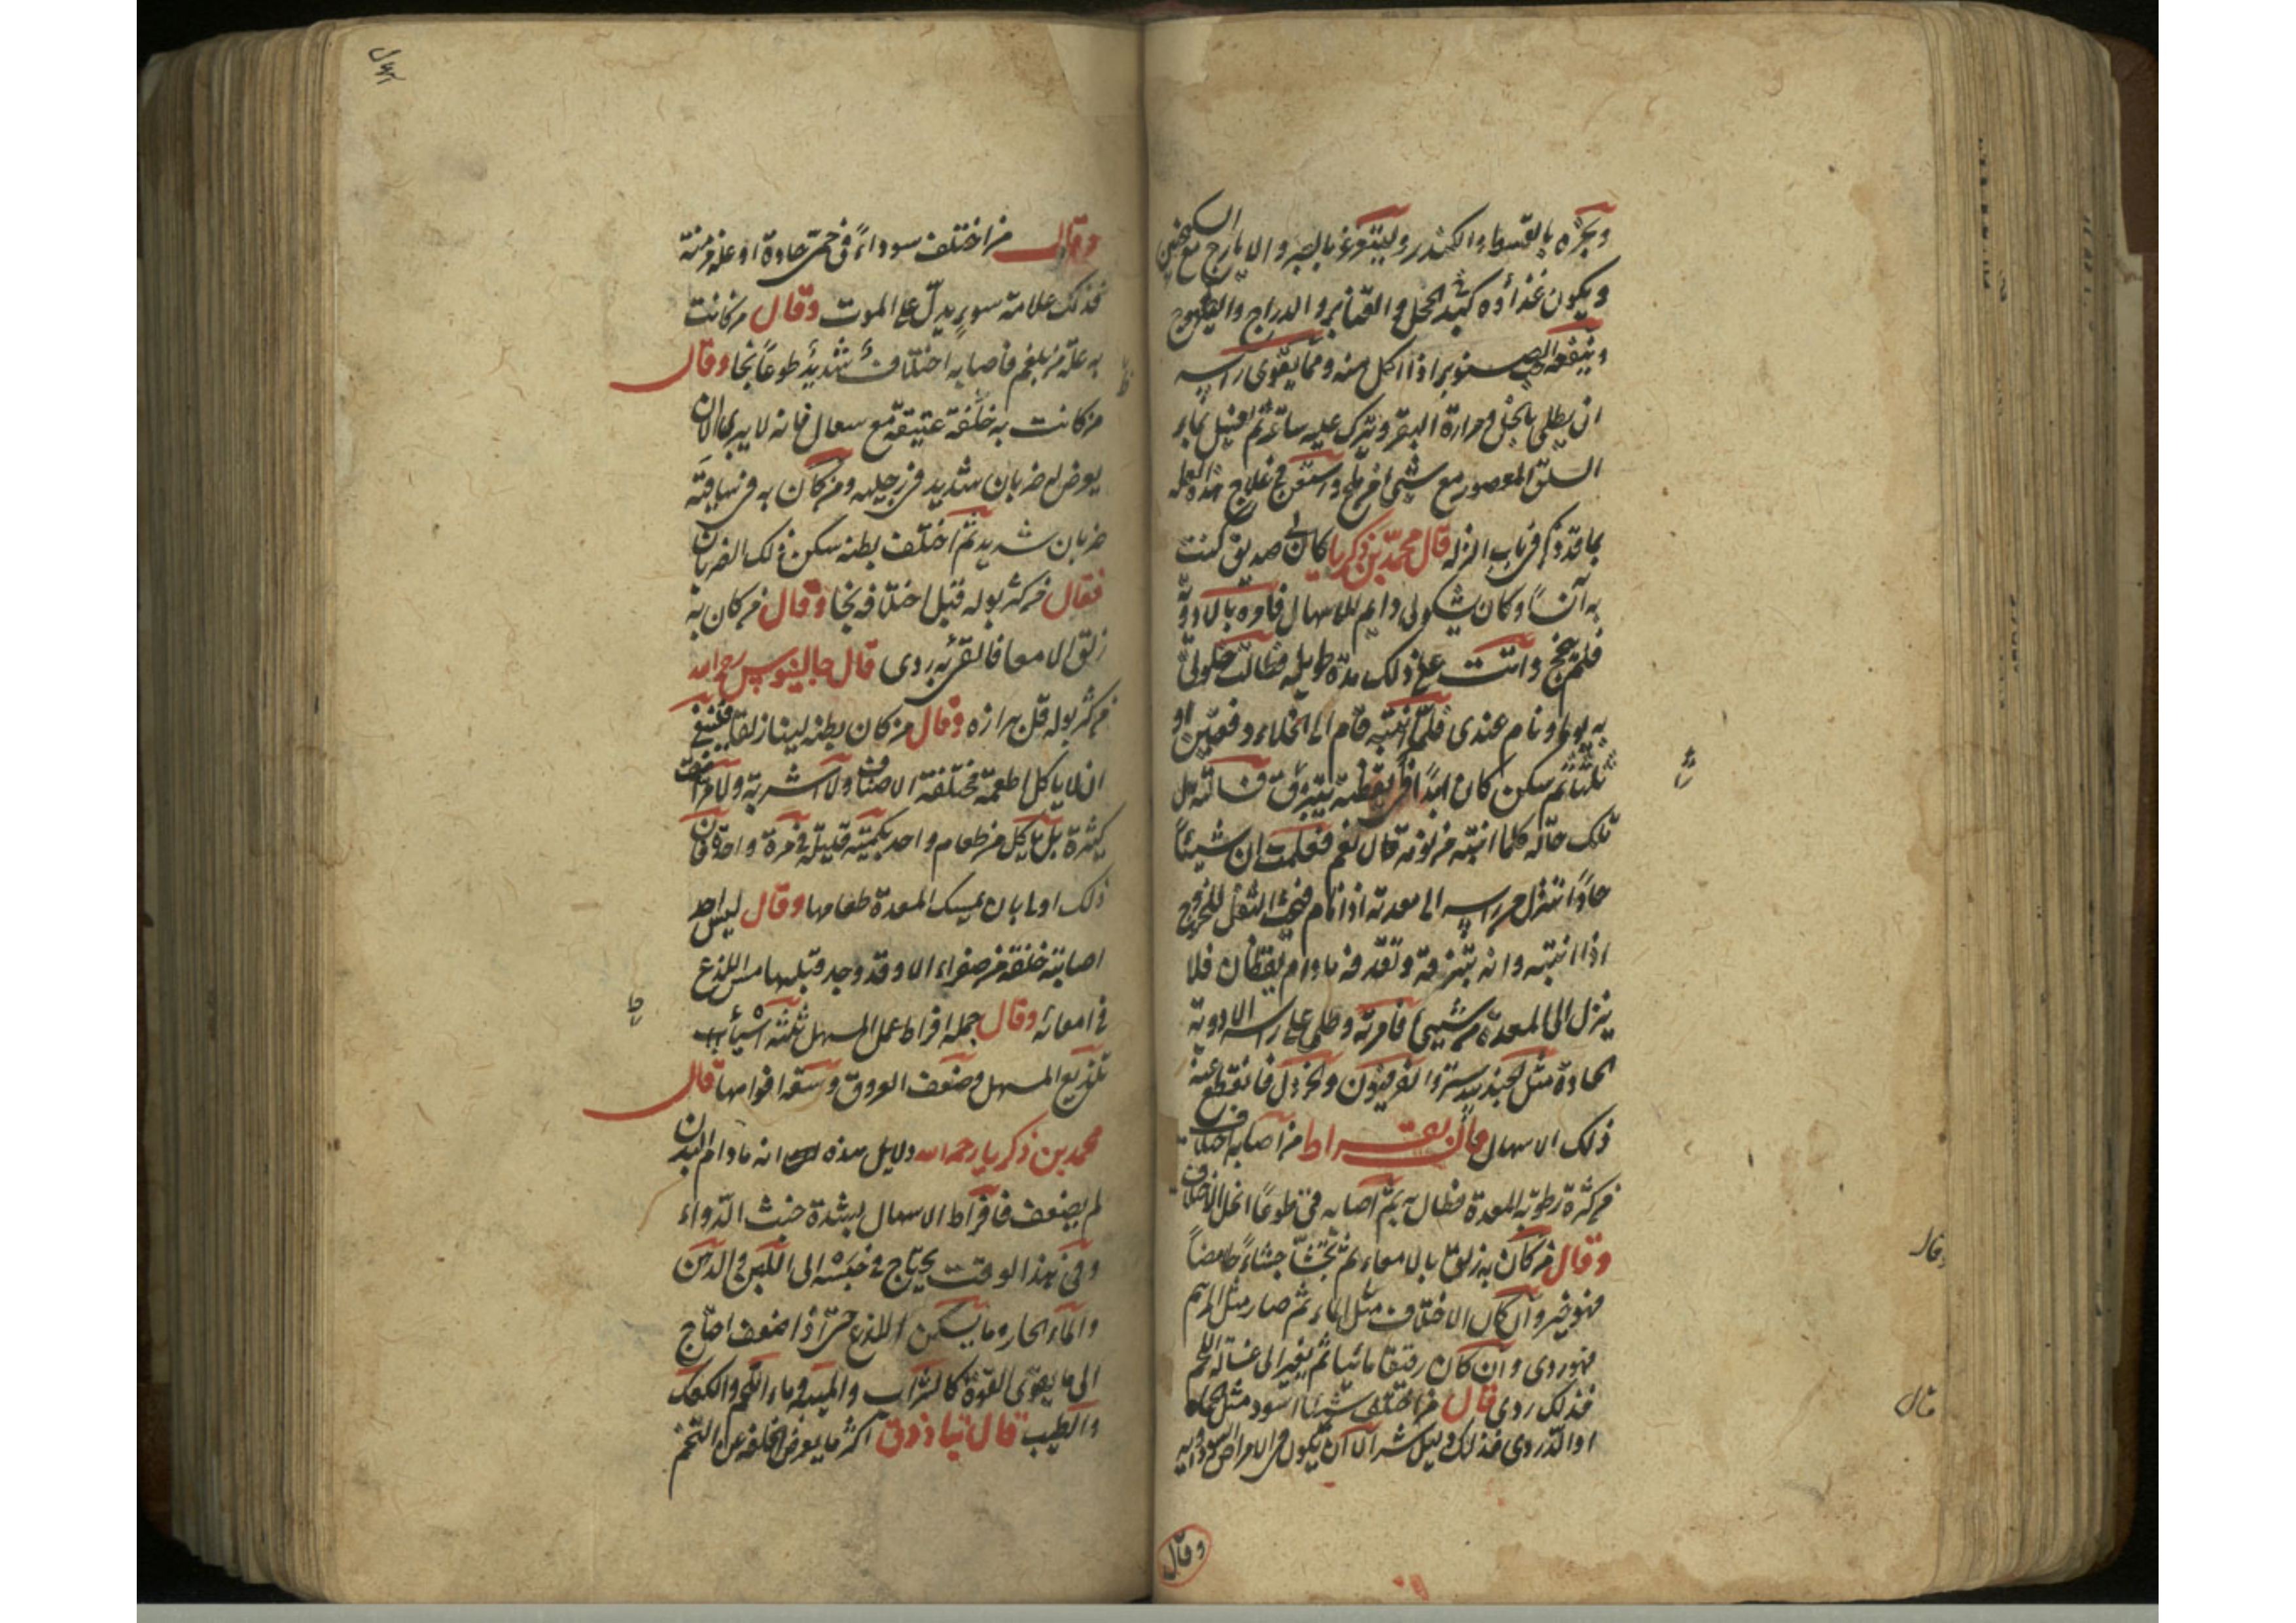 وبخره بالقسط والكندر وليتغرغر بالصبر والايارج مع السكنجبين
ويكون غذاؤه كبد الحجل والقنابر والدراج والطيهوج
وينفعه الصنوبر اذا اكل منه ومما يقوى راسه
ان يطلى بالخل ومرارة البقر ويترك عليه ساعة ثم يغسل بماء
السلق المعصور مع شىء من ملح واستعن فى علاج هذه العلة
بما قد ذكر فى باب النزلة قال محمد بن زكريا كان لى صديق كنت
به آنسا وكان يشكو لى دايم للاسهال فاوه بالادوية
فلم ينجح واتت على ذلك مدة طويلة فطالت خلو لى
به يوما ونام عندى فلما انتبه قام الى الخلاء دفعتين او
ثلثا ثم سكن كان ابدا فى يقظته يتبزق فسالته هل
تلك حاله كلما انتبه من نومه قال نعم فعلمت ان شيئا
حادا ينزل من راسه الى معدته اذا نام فيحث الثفل للخروج
اذا انتبه وانه يتبزقه وتقذفه ما دام يقظان فلا
ينزل الى المعدة من شيىء فامرته وطلى على راسه الادوية
الحادة مثل الجندبيدستر والفرفيون والخردل فانقطع عنه
ذلك الاسهال قال بقراط من اصابه اختلاف
من كثرة رطوبة المعدة فطال به ثم اصابه قىء طوعا انحل الاختلاف
وقال من كان به زلق بالامعاء ثم تجشا جشاء حامضا
فهو خير وان كان الاختلاف مثل الماء ثم صار مثل المرهم
فهو ردى وان كان رقيقا مائيا ثم يغير الى غسالة اللحم
فذلك ردى قال من اختلف شيئا اسود مثل الحماة
او الدردى فذلك دليل شر الا ان يكون فى الامراض السوداويه
وقال
وقال من اختلف سوداء فى حمى حادة او علة مزمنة
فذلك علامة سوء يدل على الموت وقال من كانت
به علة من بلغم فاصابه اختلاف شديد طوعا نجا وقال
من كانت به خلفة عتيقة مع سعال فانه لا يبرى الا ان
يعرض له ضربان شديد فى رجليه ومن كان به فى نهايته
ضربان شديد ثم اختلف بطنه سكن ذلك الضربان
فقال من كثر بوله قبل اختلافه نجا وقال من كان به
زلق الامعا فالقىء به ردى قال جالينوس رحمه الله
من كثر بوله قل برازه وقال من كان بطنه لينا زلقا فينبغى
ان لا ياكل اطعمة مختلفة الاصناف ولا اشربة ولا مرات
كثيرة بل ياكل من طعام واحد بكمية قليلة فى مرة واحدة فان
ذلك اولى بان يمسك المعدة طعامها وقال ليس احد
اصابته خلفة من صفراء الا وقد وجد قبلها مس اللذع
فى امعائه وقال جملة افراط عمل المسهل ثلثة اشياء
تلذيع المسهل وضعف العروق وسعة افواهها قال
محمد بن زكريا رحمه الله دلايل هذه انه ما دام البدن
لم يضعف فافراط الاسهال لشدة خبث الدواء
وفى هذا الوقت يحتاج فى حبسه الى اللبن والدهن
والماء الحار وما يسكن اللذع حتى اذا ضعف احتاج
الى ما يقوى القوة كالشراب والميبه وماء اللحم والكعك
والطيب قال تياذوق اكثر ما يعرض الخلفة عن التخم